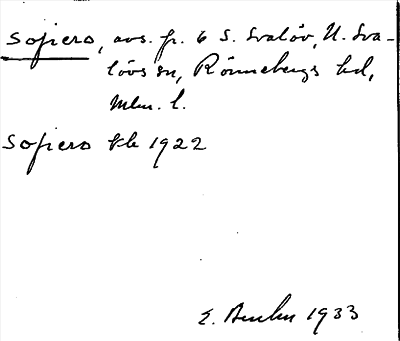 Sofiero, avs. fr. 6 S. Svalöv, N. Sva-
lövs sn, Rönnebergs hd,
Mlm. l.
Sofiero kb 1922
E. 1933